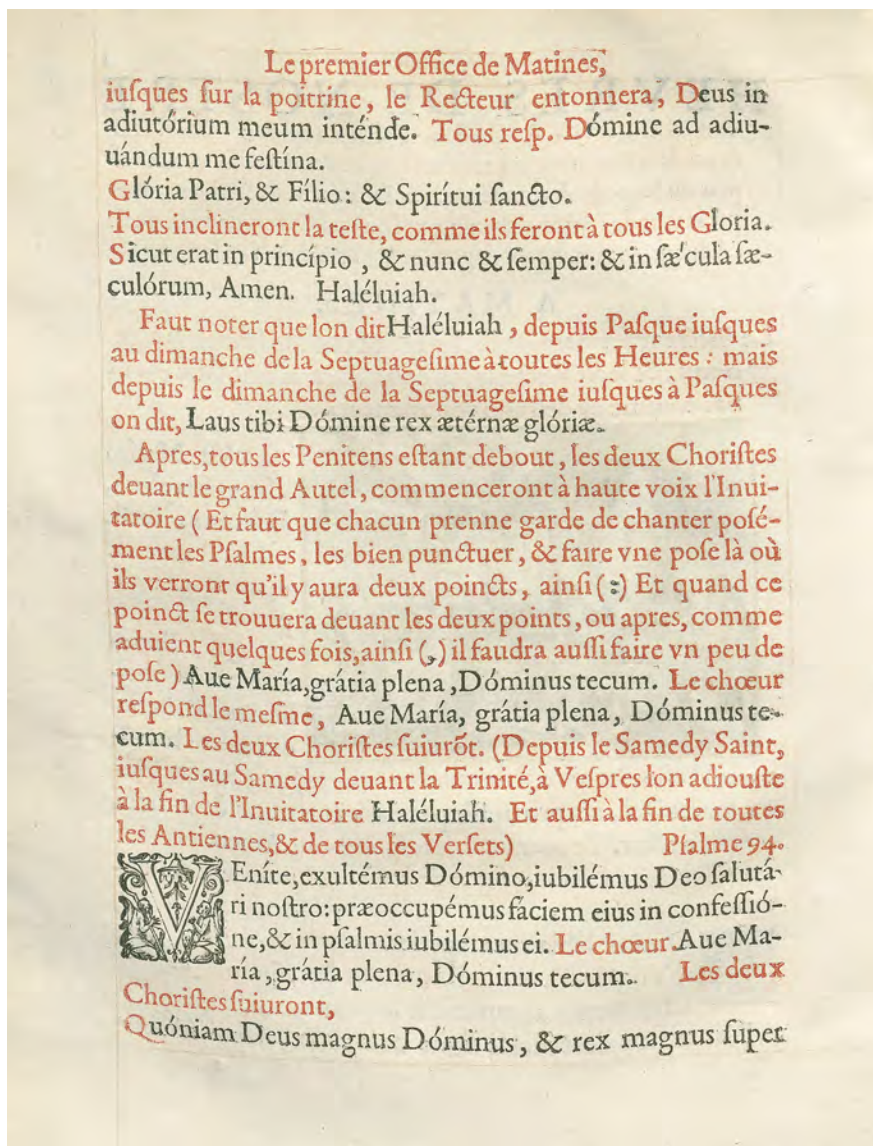 Le premier Office de Matines,
iuſques ſur la poitrine, le Recteur entonnera, Deus in
adiutórium meum inténde. Tous reſp. Dómine ad adiu-
uándum me feſtína.
Glória Patri, & Fílio: & Spirítui ſancto.
Tous inclineront la teſte, comme ils feront à tous les Gloria.
Sicut erat in princípio, & nunc & ſemper: & in ſæ'cula ſæ-
culórum, Amen. Haléluiah.
Faut noter que lon dit Haléluiah, depuis Paſque iuſques
au dimanche de la Septuageſime à toutes les Heures: mais
depuis le dimanche de la Septuageſime iuſques à Paſques
on dit, Laus tibi Dómine rex ætérnæ glóriæ.
Apres, tous les Penitens eſtant debout, les deux Choriſtes
deuant le grand Autel, commenceront à haute voix l'Inui-
tatoire (Et faut que chacun prenne garde de chanter poſé-
ment les Pſalmes, les bien punctuer, & faire vne poſe là où
ils verront qu'il y aura deux poincts, ainſi (:) Et quand ce
poinct ſe trouuera deuant les deux points, ou apres, comme
aduient quelques fois, ainſi (,) il faudra auſſi faire vn peu de
poſe) Aue María, grátia plena, Dóminus tecum. Le chœur
reſpond le meſme, Aue María, grátia plena, Dóminus te-
cum. Les deux Choriſtes ſuiurõt. (Depuis le Samedy Saint,
iuſques au Samedy deuant la Trinité, à Veſpres lon adiouſte
à la fin de l'Inuitatoire Haléluiah. Et auſſi à la fin de toutes
les Antiennes, & de tous les Verſets) Pſalme 94.
VEníte, exultémus Dómino, iubilémus Deo ſalutá-
ri noſtro: præoccupémus fáciem eius in confeſſió-
ne, & in pſalmis iubilémus ei. Le chœur. Aue Ma-
ría, grátia plena, Dóminus tecum. Les deux
Choriſtes ſuiuront,
Quóniam Deus magnus Dóminus, & rex magnus ſuper